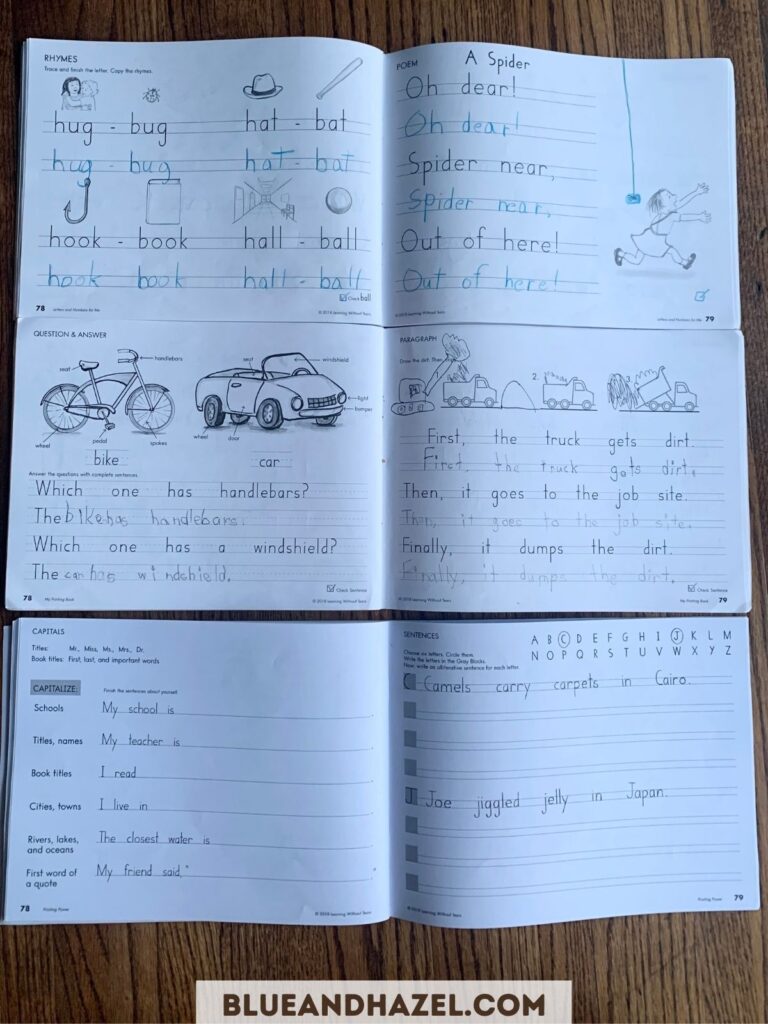 RHYMES
Trace and finish the letter. Copy the rhymes.
hug - bug hat - bat
hug - bug hat - bat
hook - book hall - ball
hook book hall - ball
Check ball
78 Letters and Numbers for Me
© 2018 Learning Without Tears
POEM
A Spider
Oh dear!
Oh dear!
Spider near,
Spider near,
Out of here!
Out of here!
© 2018 Learning Without Tears
Letters and Numbers for Me 79
QUESTION & ANSWER
seat
handlebars
wheel
pedal
spokes
bike
seat
windshield
light
bumper
wheel
door
car
Answer the questions with complete sentences.
Which one has handlebars?
The bike has handlebars.
Which one has a windshield?
The car has windshield.
Check Sentence
78 My Printing Book
© 2018 Learning Without Tears
PARAGRAPH
Draw the dirt. Then
2.
3.
First, the truck gets dirt.
First, the truck gets dirt.
Then, it goes to the job site.
Then, it goes to the job site.
Finally, it dumps the dirt.
Finally, it dumps the dirt.
Check Sentence
© 2018 Learning Without Tears
My Printing Book 79
CAPITALS
Titles: Mr., Miss, Ms., Mrs., Dr.
Book titles: First, last, and important words
CAPITALIZE: Finish the sentences about yourself.
Schools My school is
Titles, names My teacher is
Book titles I read
Cities, towns I live in
Rivers, lakes, The closest water is
and oceans
First word of My friend said, "
a quote
78 Printing Power
© 2018 Learning Without Tears
SENTENCES
A B C D E F G H I J K L M
N O P Q R S T U V W X Y Z
Choose six letters. Circle them.
Write the letters in the Gray Blocks.
Now, write an alliterative sentence for each letter.
C Camels carry carpets in Cairo.
J Joe jiggled jelly in Japan.
© 2018 Learning Without Tears
Printing Power 79
BLUEANDHAZEL.COM